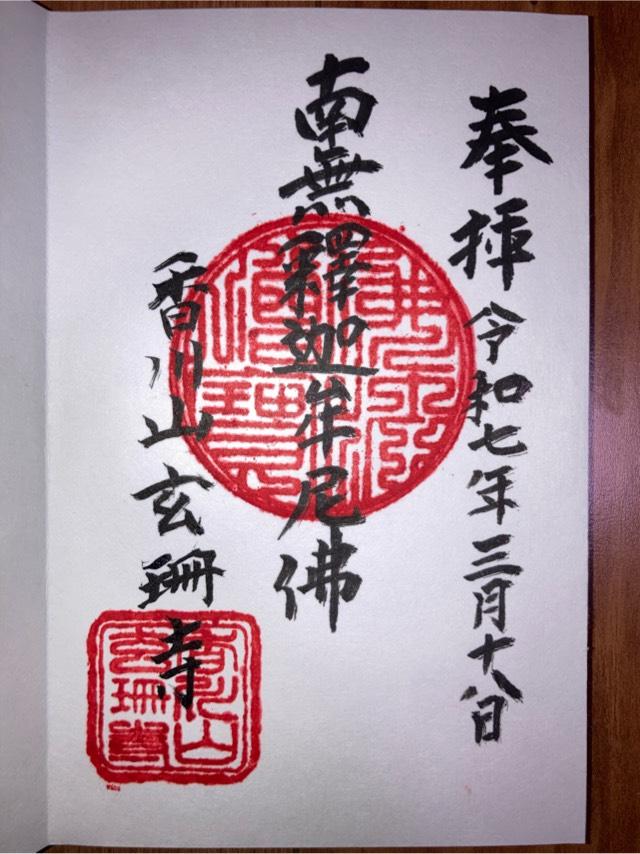 奉拝 令和七年三月十八日
南無釋迦牟尼佛
香川山玄珊寺